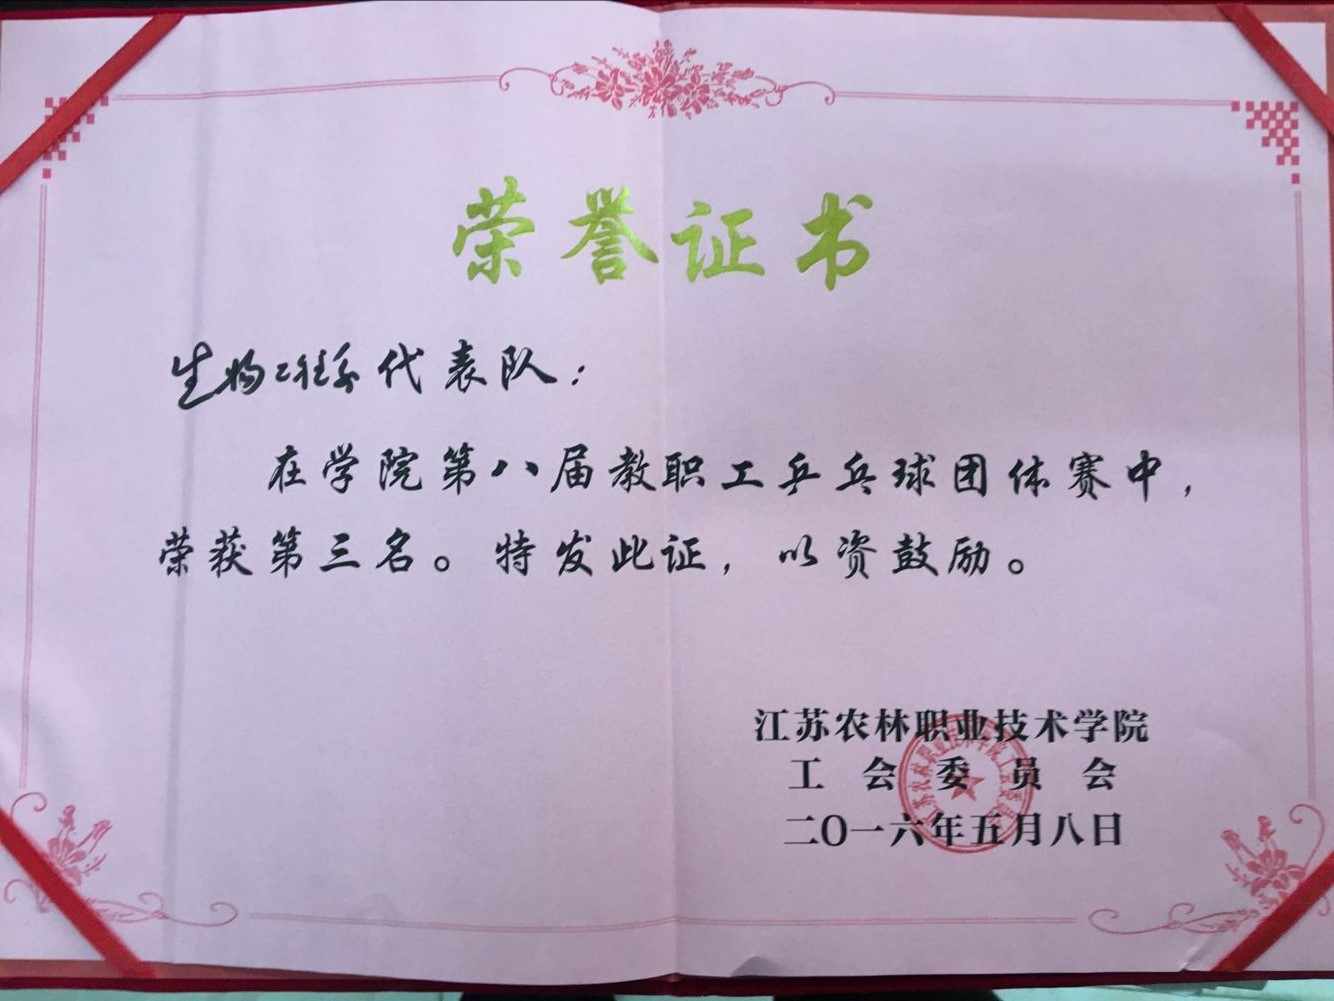 荣誉证书
生物工程系代表队：
在学院第八届教职工乒乓球团体赛中，
荣获第三名。特发此证，以资鼓励。
江苏农林职业技术学院
工会委员会
二〇一六年五月八日